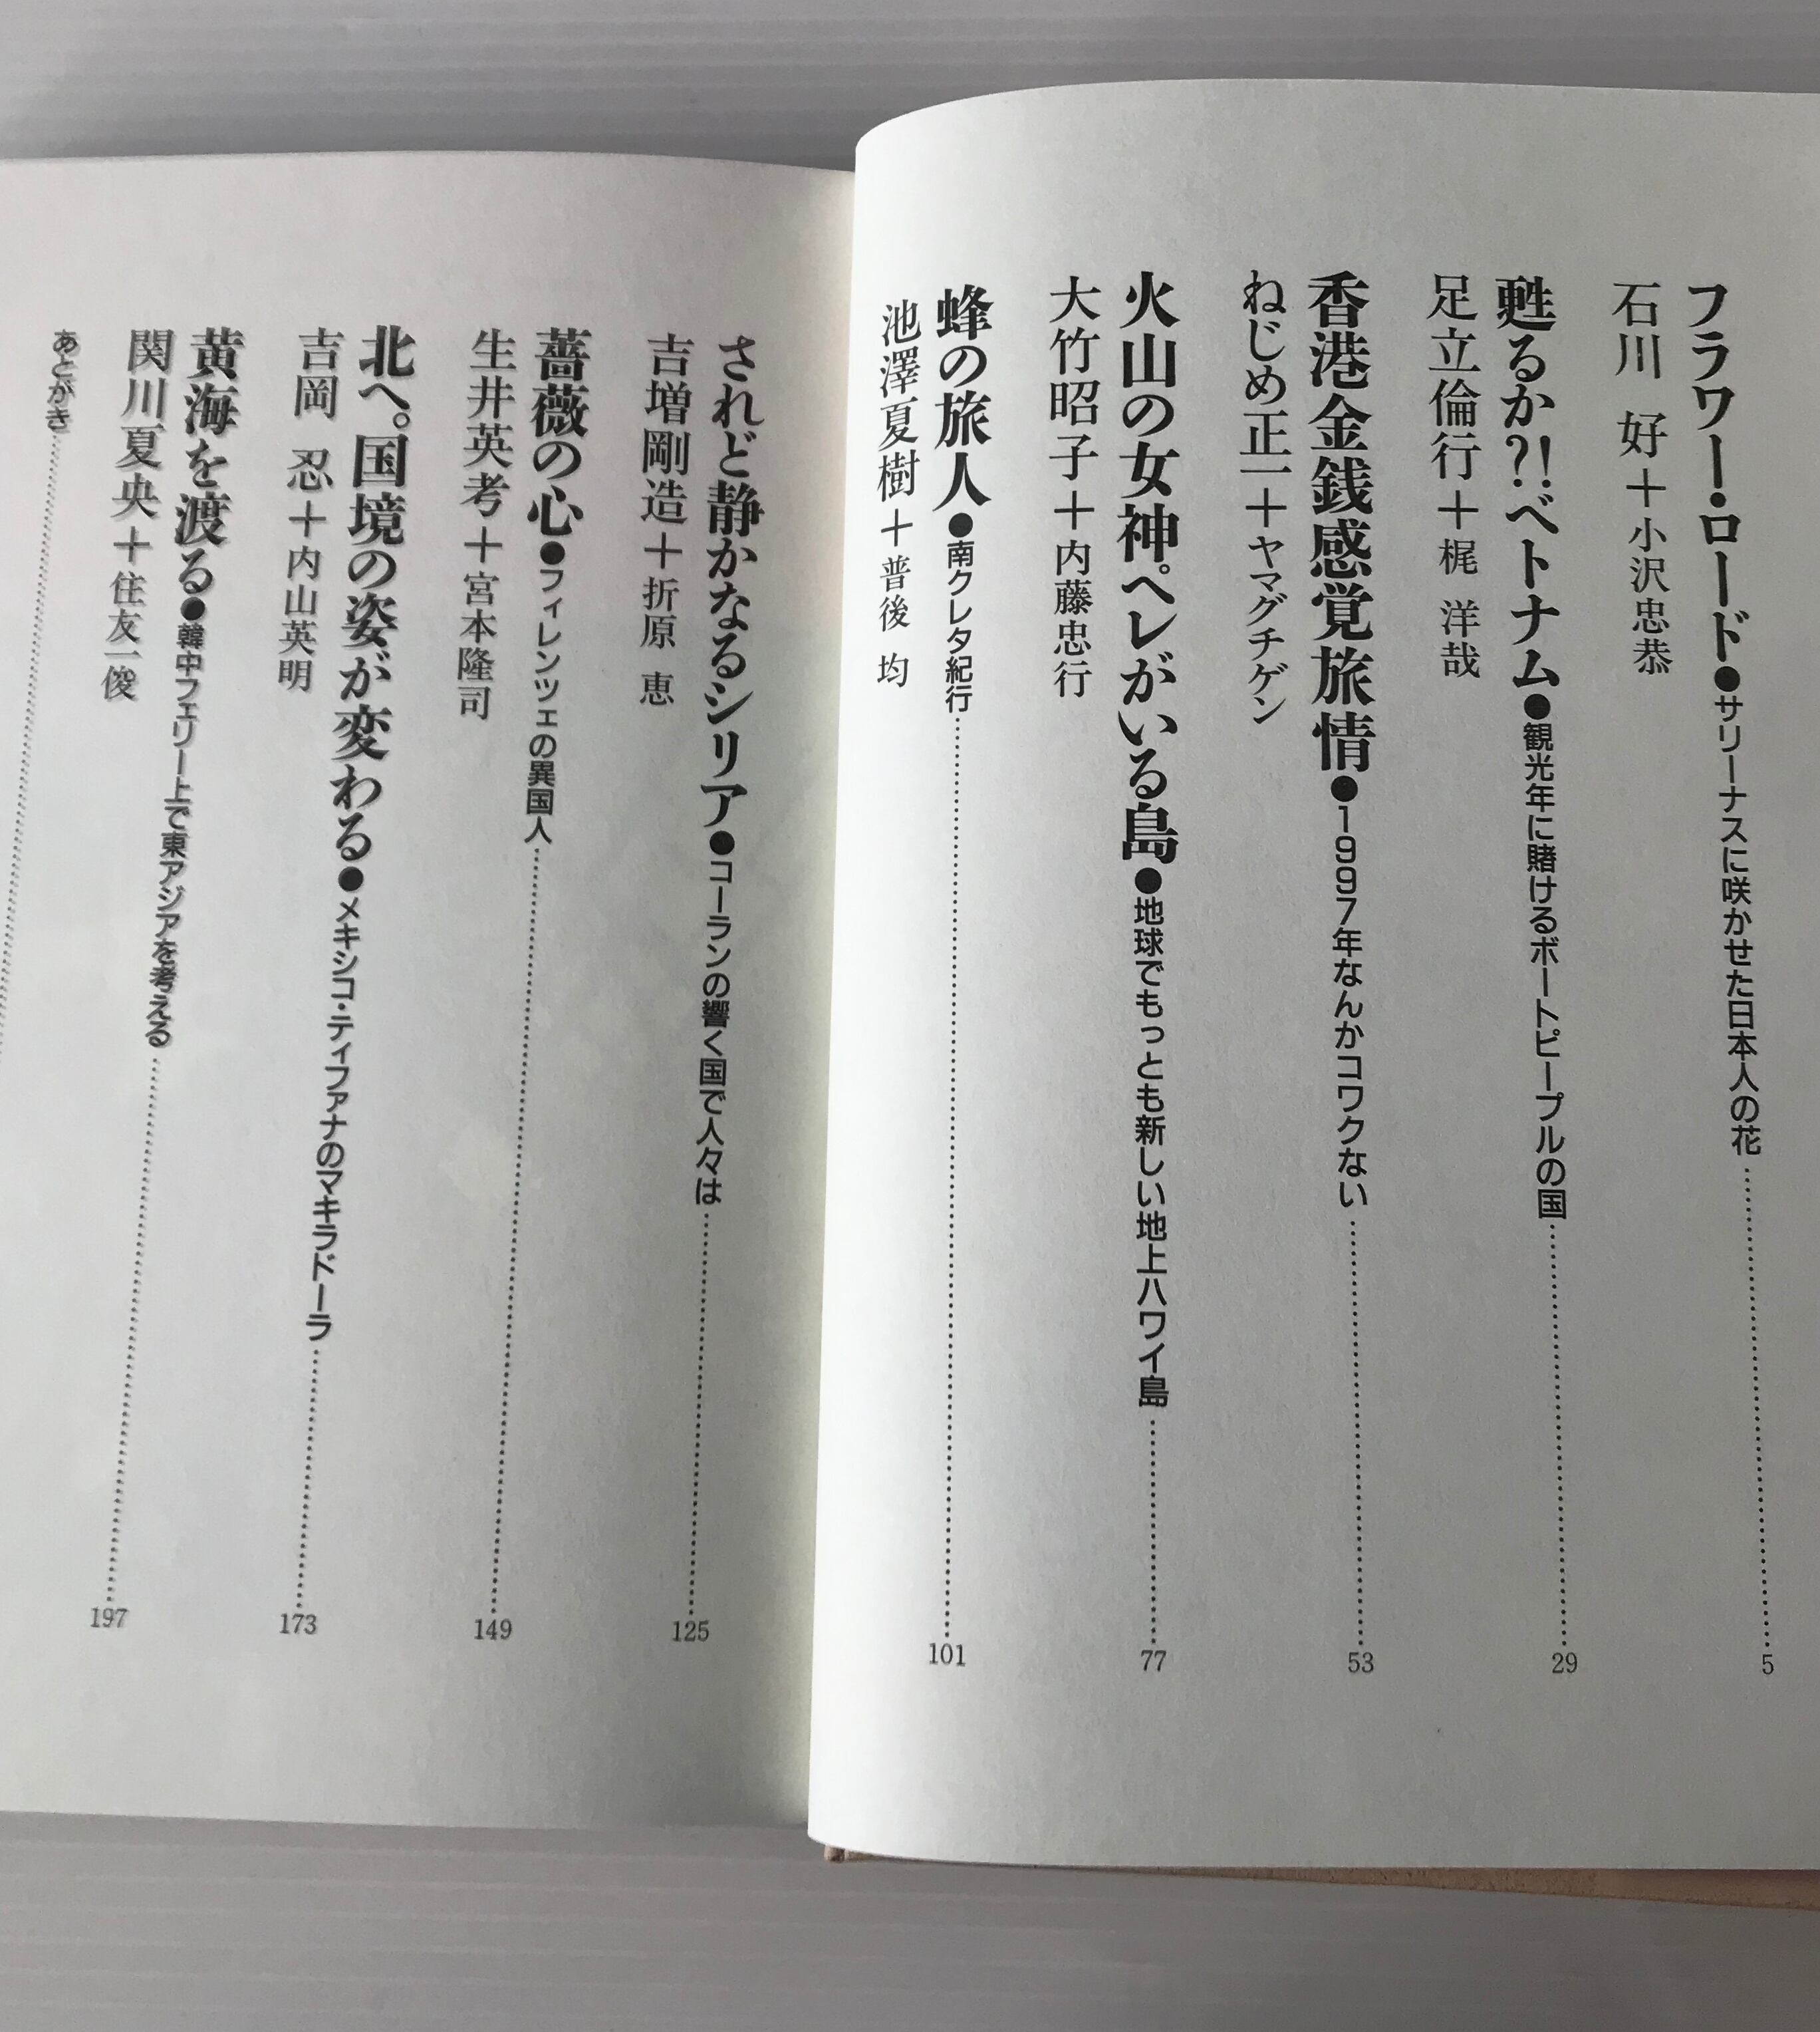 フラワー・ロード●サリーナスに咲かせた日本人の花 5
石川 好＋小沢忠恭
甦るか?!ベトナム●観光年に賭けるボートピープルの国 29
足立倫行＋梶 洋哉
香港金銭感覚旅情●1997年なんかコワクない 53
ねじめ正一＋ヤマグチゲン
火山の女神ペレがいる島●地球でもっとも新しい地上ハワイ島 77
大竹昭子＋内藤忠行
蜂の旅人●南クレタ紀行 101
池澤夏樹＋普後 均
されど静かなるシリア●コーランの響く国で人々は 125
吉増剛造＋折原 恵
薔薇の心●フィレンツェの異国人 149
生井英考＋宮本隆司
北へ。国境の姿が変わる●メキシコ・ティファナのマキラドーラ 173
吉岡 忍＋内山英明
黄海を渡る●韓中フェリー上で東アジアを考える 197
関川夏央＋住友一俊
あとがき